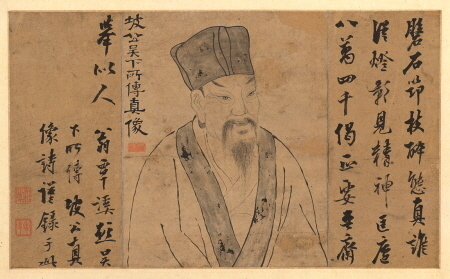 石筇杖醉態真誰
從燈影見精神匡廬
八萬四千偈正要吾齋
坡公吳下所傳真像
舉似人
翁覃溪題吳
下所傳坡公真
像詩謹錄于此